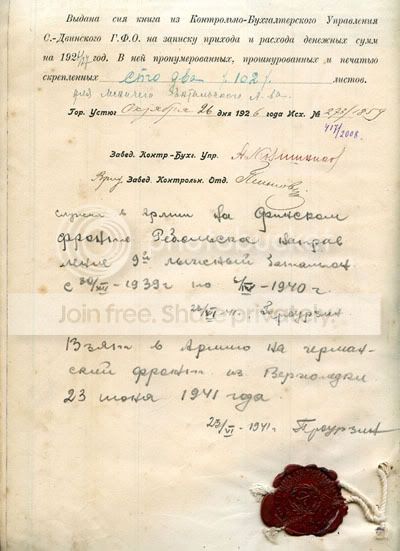 Выдана сия книга из Контрольно-Бухгалтерского Управления
С.-Двинского Г.Ф.О. на записку прихода и расхода денежных сумм
на 1926/27 год. В ней пронумерованных, прошнурованных и печатью
скрепленных сто два (102) листов.
для
Гор. Устюг Октября 26 дня 1926 года Исх. №
417/2008.
Завед. Контр-Бухг. Упр.
Врид Завед. Контрольн. Отд.
служил в армии на финском
фронте Ребольское направ
ление 9й лыжный батальон
с 30/XII-1939г по -1940г.
photobucket
Join free. Share privately.
Взят в Армию на герман-
ский фронт из Верполедки
23 июня 1941 года.
23/VI-1941г Проурзин